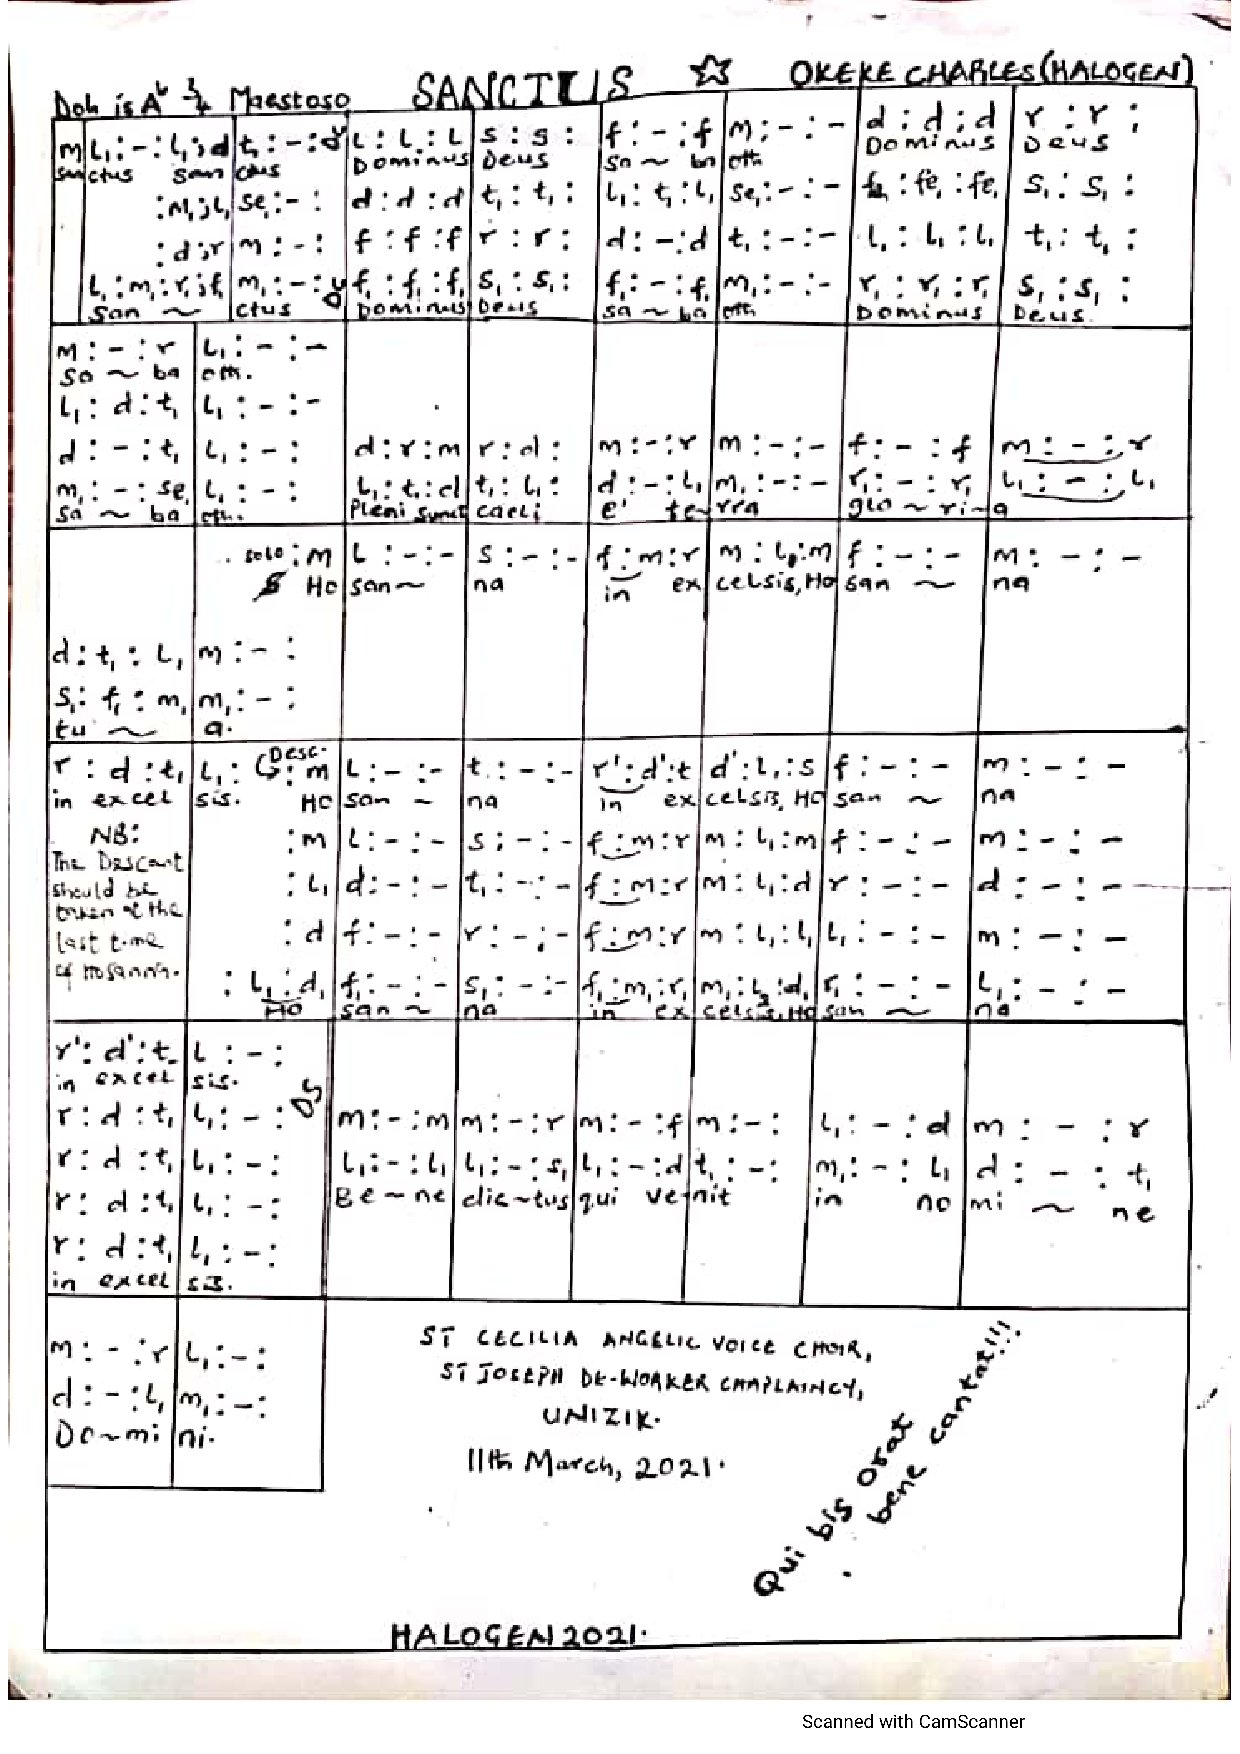 Doh is Ab 3/4 Maestoso SANCTUS ☆ OKEKE CHARLES (HALOGEN)
m l₁:-:l₁;d t₁:-: l:l:l s:s: f:-:f m:-:- d:d:d r:r:
Sanctus San ctus Dominus Deus Sa ~ ba oth Dominus Deus
:m₁;l₁ se₁:-: d:d:d t₁:t₁: l₁:t₁:l₁ se₁:-:- fe₁:fe₁:fe₁ s₁:s₁:
:d;r m:-: f:f:f r:r: d:-:d t₁:-:- l₁:l₁:l₁ t₁:t₁:
l₁:m₁:r₁;f₁ m₁:-: f₁:f₁:f₁ s₁:s₁: f₁:-:f₁ m₁:-:- r₁:r₁:r₁ s₁:s₁:
San ~ ctus Dominus Deus sa ~ ba oth Dominus Deus.
m:-:r l₁:-:-
Sa ~ ba oth.
l₁:d:t₁ l₁:-:-
d:-:t₁ l₁:-: d:r:m r:d: m:-:r m:-:- f:-:f m:-:r
m₁:-:se₁ l₁:-: l₁:t₁:d t₁:l₁: d:-:l₁ m₁:-:- r₁:-:r₁ l₁:-:l₁
sa ~ ba oth. Pleni sunt caeli e' te-rra glo ~ ri-a
solo:m l:-:- s:-:- f:m:r m:l₁:m f:-:- m:-:-
Ho san~ na in ex celsis, Ho san ~ na
d:t₁:l₁ m:-:
s₁:f₁:m₁ m₁:-:
tu ~ a.
Desc.
r:d:t₁ l₁: :m l:-:- t:-:- r':d':t d':l₁:s f:-:- m:-:-
in excel sis. Ho san ~ na in ex celsis, Ho san ~ na
NB: :m l:-:- s:-:- f:m:r m:l₁:m f:-:- m:-:-
The Descant
should be :l₁ d:-:- t₁:-:- f:m:r m:l₁:d r:-:- d:-:-
taken at the
last time :d f:-:- r:-:- f:m:r m:l₁:l₁ l₁:-:- m:-:-
of hosanna. :l₁:d₁ f₁:-:- s₁:-:- f₁:m₁:r₁ m₁:l₂:d₁ r₁:-:- l₁:-:-
Ho san ~ na in ex celsis, Ho san ~ na
r':d':t l:-:
in excel sis.
DS
r:d:t₁ l₁:-: m:-:m m:-:r m:-:f m:-: l₁:-:d m:-:r
r:d:t₁ l₁:-: l₁:-:l₁ l₁:-:s₁ l₁:-:d t₁:-: m₁:-:l₁ d:-:t₁
r:d:t₁ l₁:-: Be ~ ne dic~tus qui ve-nit in no mi ~ ne
r:d:t₁ l₁:-:
in excel sis.
m:-:r l₁:-:
d:-:l₁ m₁:-:
Do~mi ni.
ST CECILIA ANGELIC VOICE CHOIR,
ST JOSEPH DE-WORKER CHAPLAINCY,
UNIZIK.
11th March, 2021.
Qui bis orat
bene cantat!!!
HALOGEN 2021.
Scanned with CamScanner